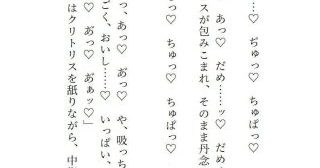 ……♡　ぢゅっ♡　ぢゅぱっ♡
あっ♡　だめ……ッ♡　だめ
スが包みこまれ、そのまま丹念
♡　ちゅっ♡　ちゅぱっ♡
っ、あっ♡　あ゙っ♡　や、吸っち
ごく、おいし……♡　いっぱい、
♡　あ゙っ♡　あ゙ァッ♡」
はクリトリスを舐りながら、中